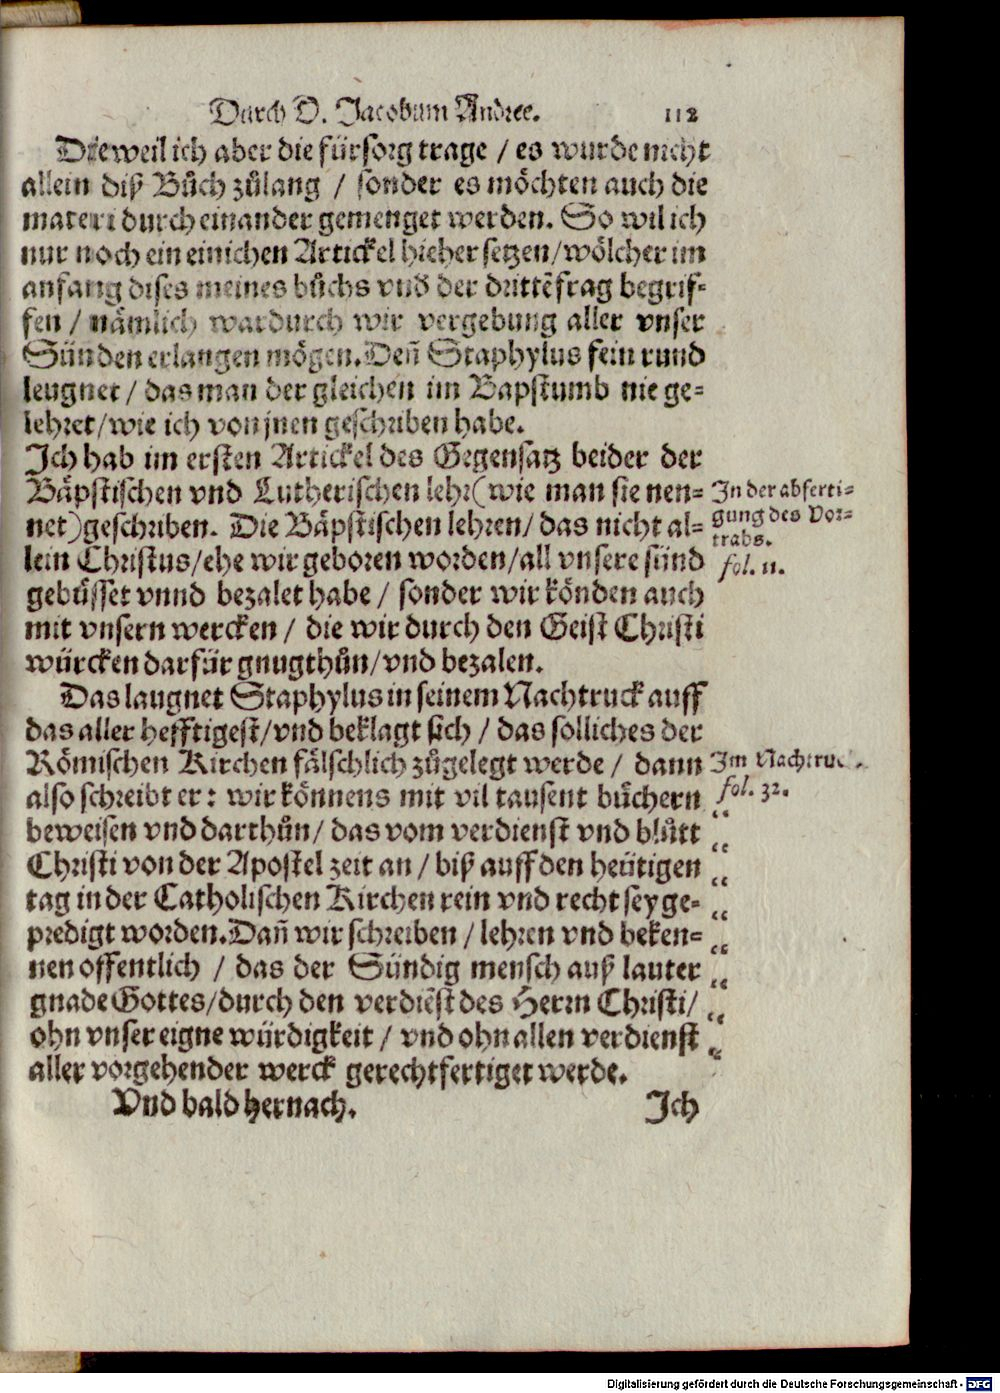 Durch D. Jacobum Andree. 112
Dieweil ich aber die fürsorg trage / es wurde nicht
allein diß Bůch zůlang / sonder es möchten auch die
materi durch einander gemenget werden. So wil ich
nur noch ein einichen Artickel hieher setzen/wölcher im
anfang dises meines bůchs vnd der drittẽ frag begrif-
fen / nämlich wardurch wir vergebung aller vnser
Sünden erlangen mögen. Deñ Staphylus fein rund
leugnet / das man der gleichen im Bapstumb nie ge-
lehret/wie ich von jnen geschriben habe.
Ich hab im ersten Artickel des Gegensatz beider der
Bäpstischen vnd Lutherischen lehr(wie man sie nen-
net)geschriben. Die Bäpstischen lehren/ das nicht al-
lein Christus/ehe wir geboren worden/all vnsere sünd
gebüsset vnnd bezalet habe / sonder wir könden auch
mit vnsern wercken / die wir durch den Geist Christi
würcken darfür gnugthůn/vnd bezalen.
In der abferti-
gung des Vor-
trabs.
fol. 11.
Das laugnet Staphylus in seinem Nachtruck auff
das aller hefftigest/vnd beklagt sich / das solliches der
Römischen Kirchen fälschlich zůgelegt werde / dann
also schreibt er: wir könnens mit vil tausent büchern
beweisen vnd darthůn/ das vom verdienst vnd blůtt
Christi von der Apostel zeit an / biß auff den heütigen
tag in der Catholischen Kirchen rein vnd recht sey ge-
predigt worden. Dañ wir schreiben / lehren vnd beken-
nen offentlich / das der Sündig mensch auß lauter
gnade Gottes/durch den verdiẽst des Herrn Christi/
ohn vnser eigne würdigkeit / vnd ohn allen verdienst
aller vorgehender werck gerechtfertiget werde.
Im Nachtruck.
fol. 32.
Vnd bald hernach. Ich
Digitalisierung gefördert durch die Deutsche Forschungsgemeinschaft - DFG